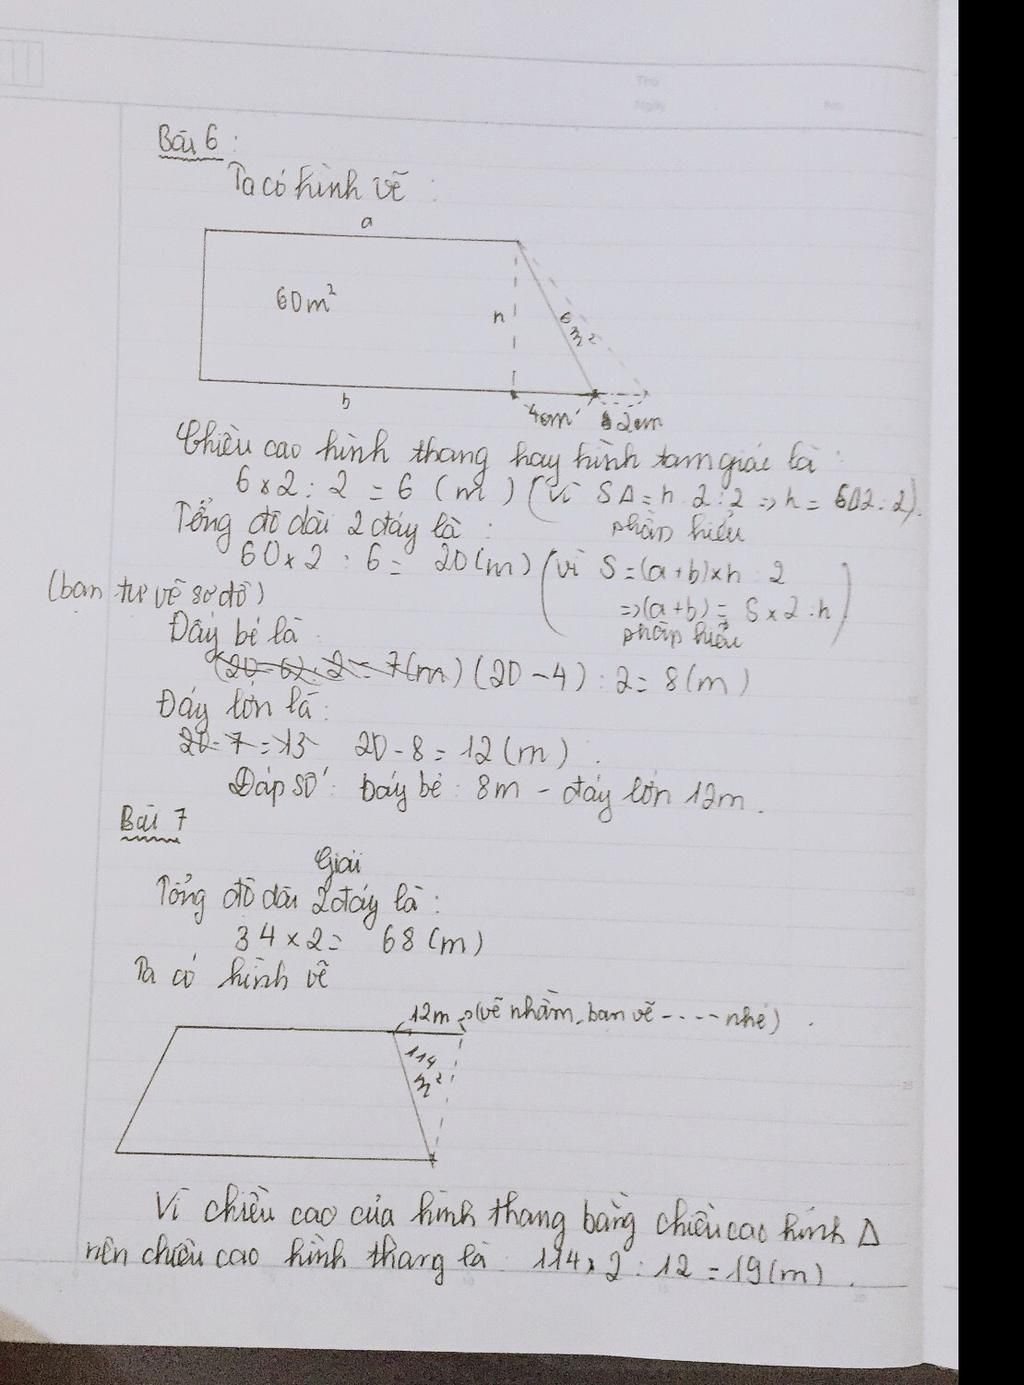 Thứ
Ngày
No
Bài 6 :
Ta có hình vẽ :
a
60m²
h
6 m²
b
4cm
2cm
Chiều cao hình thang hay hình tam giác là :
6 x 2 : 2 = 6 (m) (vì S Δ = h . 2 : 2 => h = SΔ2 : 2).
phần hiểu
Tổng độ dài 2 đáy là :
60 x 2 : 6 = 20 (m) (vì S = (a+b) x h : 2
=> (a+b) = S x 2 : h)
phần hiểu
(bạn tự vẽ sơ đồ)
Đáy bé là :
(20 - 6) : 2 = 7 (m) (20 - 4) : 2 = 8 (m)
Đáy lớn là :
20 - 7 = 13 20 - 8 = 12 (m) .
Đáp số : Đáy bé : 8m - đáy lớn 12m .
Bài 7
Giải
Tổng độ dài 2 đáy là :
34 x 2 = 68 (m)
Ta có hình vẽ
12m (vẽ nhầm, bạn vẽ ---- nhé) .
114 m²
Vì chiều cao của hình thang bằng chiều cao hình Δ
nên chiều cao hình thang là 114 x 2 : 12 = 19 (m) .